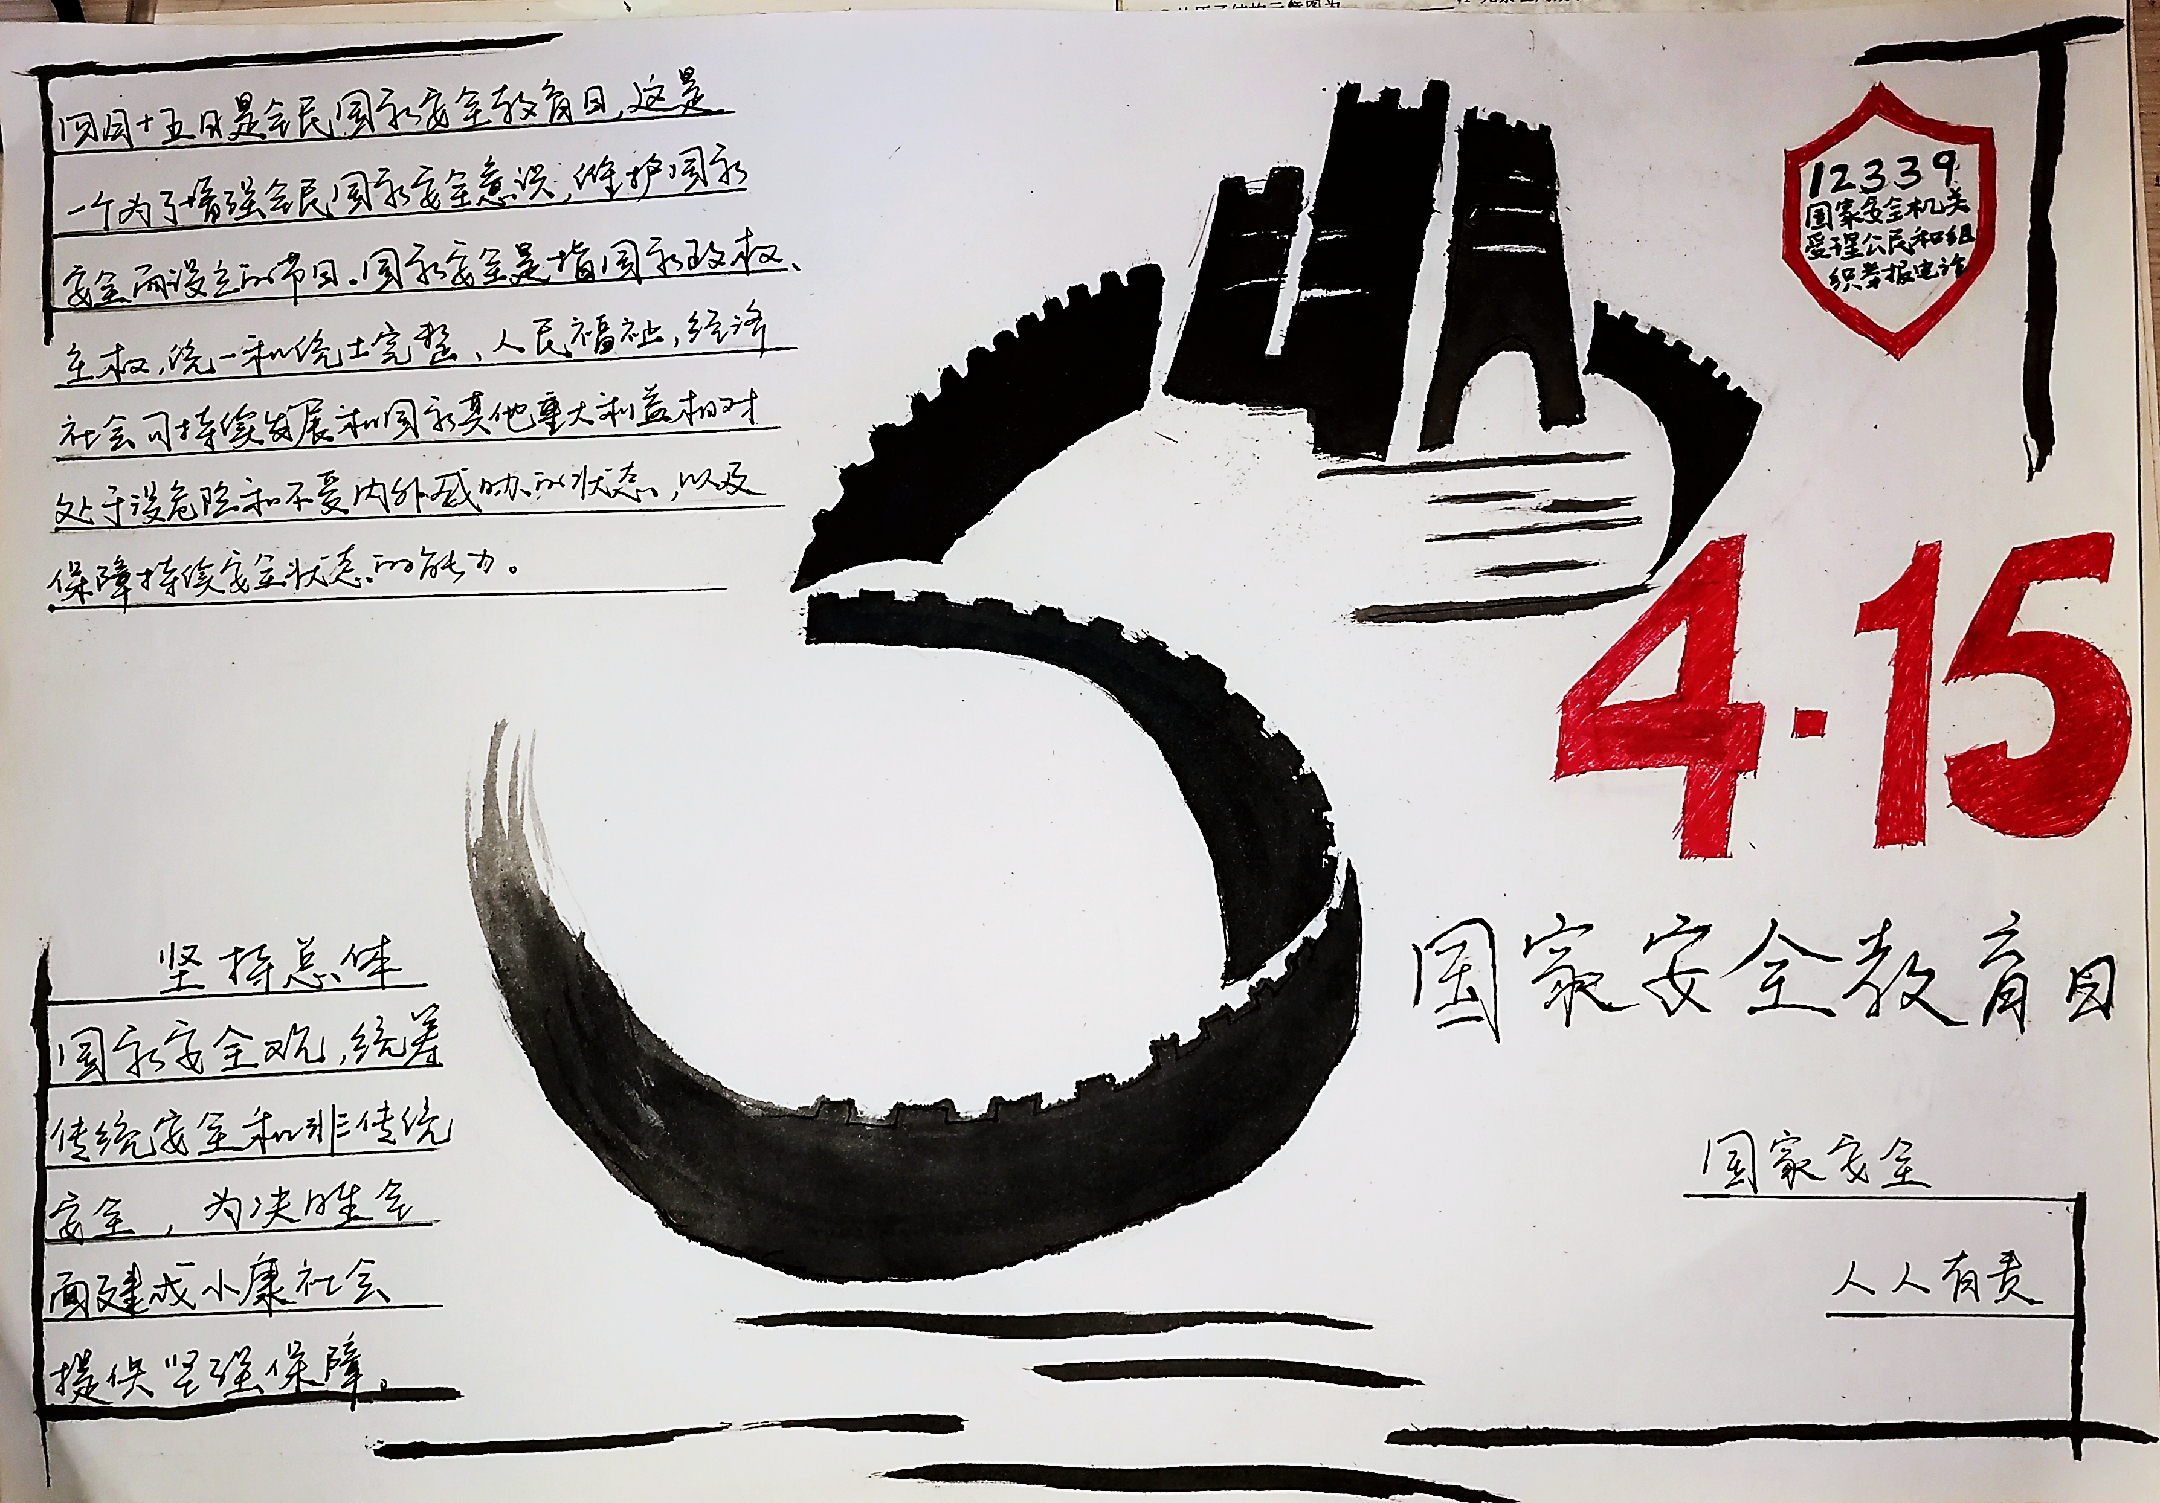 四月十五日是全民国家安全教育日,这是
一个为了增强全民国家安全意识,维护国家
安全而设立的节日。国家安全是指国家政权、
主权,统一和统土完整、人民福祉,经济
社会可持续发展和国家其他重大利益相对
处于没危险和不受内外威胁的状态,以及
保障持续安全状态的能力。
12339
国家安全机关
受理公民和组
织举报电话
4·15
国家安全教育日
坚持总体
国家安全观,统筹
传统安全和非传统
安全,为决胜全
面建成小康社会
提供坚强保障。
国家安全
人人有责